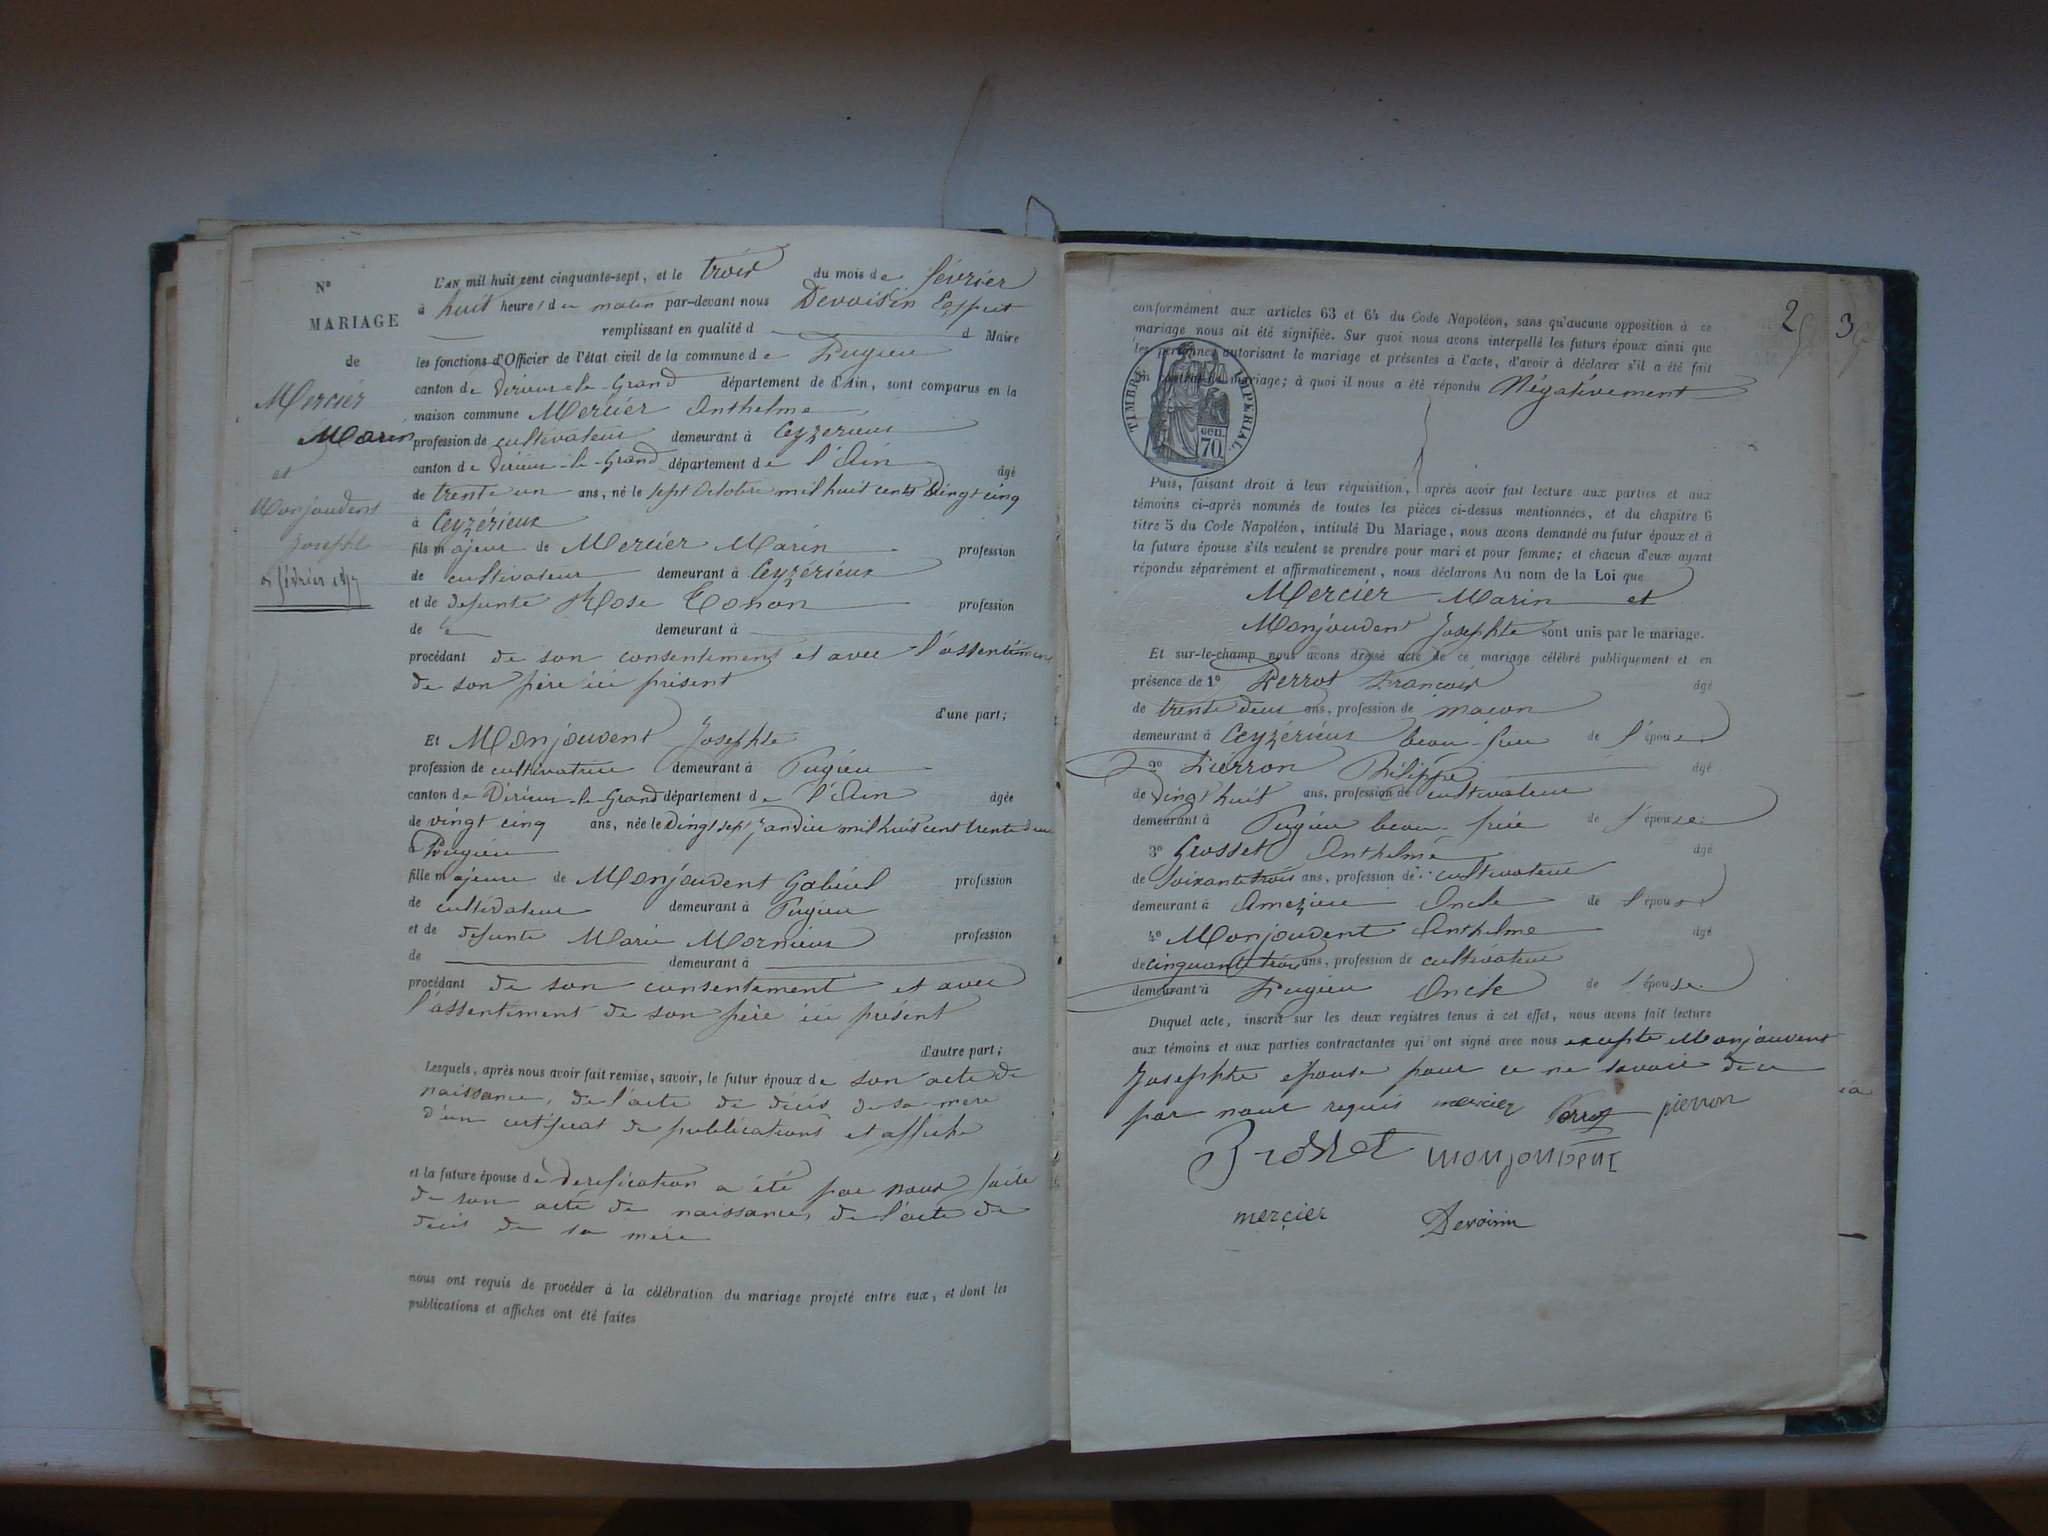 Nº
MARIAGE
de
Mercier
Marin
et
Monjouvent
Josephte
3 février 1857
L'AN mil huit cent cinquante-sept, et le trois du mois de février
à huit heures du matin par-devant nous Devoisin Esprit
remplissant en qualité d d Maire
les fonctions d'Officier de l'état civil de la commune de Pugieu
canton de Virieu-le-Grand département de l'Ain, sont comparus en la
maison commune Mercier Anthelme
profession de cultivateur demeurant à Ceyzerieux
canton de Virieu-le-Grand département de l'Ain âgé
de trente un ans, né le sept Octobre mil huit cents vingt cinq
à Ceyzérieux
fils majeur de Mercier Marin profession
de cultivateur demeurant à Ceyzérieux
et de defunte Rose Tonon profession
de demeurant à
procédant de son consentement et avec l'assentiment
de son père ici présent
d'une part;
Et Monjouvent Josephte
profession de cultivatrice demeurant à Pugieu
canton de Virieu-le-Grand département de l'Ain âgée
de vingt cinq ans, née le vingt sept Janvier mil huit cent trente deux
à Pugieu
fille majeure de Monjouvent Gabriel profession
de cultivateur demeurant à Pugieu
et de defunte Marie Mornieux profession
de demeurant à
procédant de son consentement et avec
l'assentiment de son père ici présent
d'autre part;
Lesquels, après nous avoir fait remise, savoir, le futur époux de son acte de
naissance, de l'acte de décès de sa mère
d'un certificat de publications et affiche
et la future épouse de verification a été par nous faite
de son acte de naissance, de l'acte de
décès de sa mère
nous ont requis de procéder à la célébration du mariage projeté entre eux, et dont les
publications et affiches ont été faites
2 3
conformément aux articles 63 et 64 du Code Napoléon, sans qu'aucune opposition à ce
mariage nous ait été signifiée. Sur quoi nous avons interpellé les futurs époux ainsi que
les personnes autorisant le mariage et présentes à l'acte, d'avoir à déclarer s'il a été fait
un contrat de mariage; à quoi il nous a été répondu Négativement
TIMBRE IMPERIAL
CEN. 70
Puis, faisant droit à leur réquisition, après avoir fait lecture aux parties et aux
témoins ci-après nommés de toutes les pièces ci-dessus mentionnées, et du chapitre 6
titre 5 du Code Napoléon, intitulé Du Mariage, nous avons demandé au futur époux et à
la future épouse s'ils veulent se prendre pour mari et pour femme; et chacun d'eux ayant
répondu séparément et affirmaticement, nous déclarons Au nom de la Loi que
Mercier Marin et
Monjouvent Josephte sont unis par le mariage.
Et sur-le-champ nous avons dressé acte de ce mariage célébré publiquement et en
présence de 1º Perrot François âgé
de trente deux ans, profession de macon
demeurant à Ceyzérieux beau-frère de l'épouse
2º Pierron Philippe âgé
de vingt huit ans, profession de cultivateur
demeurant à Pugieu beau-frère de l'épouse
3º Grosset Anthelme âgé
de soixante trois ans, profession de cultivateur
demeurant à Amezieu Oncle de l'épouse
4º Monjouvent Anthelme âgé
de cinquante trois ans, profession de cultivateur
demeurant à Pugieu Oncle de l'épouse.
Duquel acte, inscrit sur les deux registres tenus à cet effet, nous avons fait lecture
aux témoins et aux parties contractantes qui ont signé avec nous excepté Monjouvent
Josephte épouse pour ce ne savoir de ce
par nous requis mercier Perrot pierron
monjouvent
mercier Devoisin